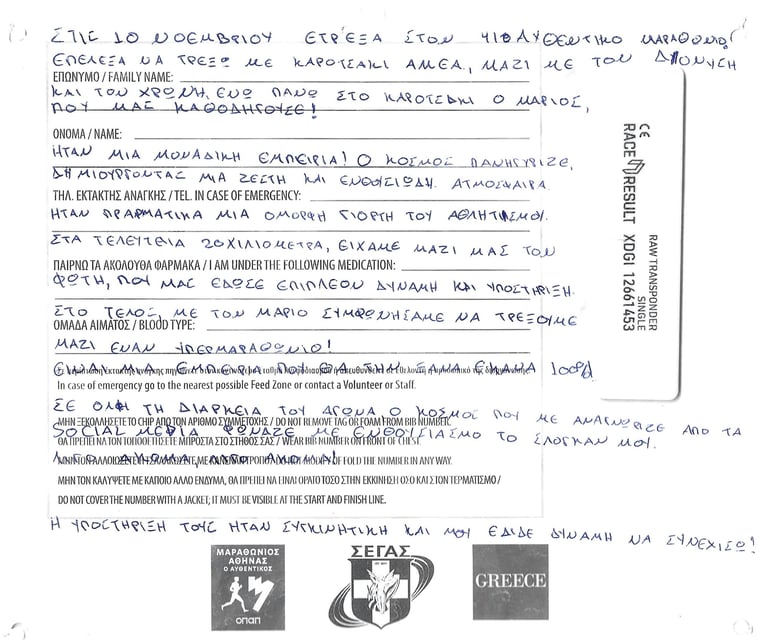 ΣΤΙΣ 10 ΝΟΕΜΒΡΙΟΥ ΕΤΡΕΞΑ ΣΤΟΝ 41ο ΑΥΘΕΝΤΙΚΟ ΜΑΡΑΘΩΝΙΟ!
ΕΠΕΛΕΞΑ ΝΑ ΤΡΕΞΩ ΜΕ ΚΑΡΟΤΣΑΚΙ ΑΜΕΑ, ΜΑΖΙ ΜΕ ΤΟΝ ΔΙΟΝΥΣΗ
ΕΠΩΝΥΜΟ / FAMILY NAME:
ΚΑΙ ΤΟΝ ΧΡΟΝΗ, ΕΝΩ ΠΑΝΩ ΣΤΟ ΚΑΡΟΤΣΑΚΙ Ο ΜΑΡΙΟΣ,
ΠΟΥ ΜΑΣ ΚΑΘΟΔΗΓΟΥΣΕ!
ΟΝΟΜΑ / NAME:
ΗΤΑΝ ΜΙΑ ΜΟΝΑΔΙΚΗ ΕΜΠΕΙΡΙΑ! Ο ΚΟΣΜΟΣ ΠΑΝΗΓΥΡΙΖΕ,
ΔΗΜΙΟΥΡΓΟΝΤΑΣ ΜΙΑ ΖΕΣΤΗ ΚΑΙ ΕΝΘΟΥΣΙΩΔΗ ΑΤΜΟΣΦΑΙΡΑ
ΤΗΛ. ΕΚΤΑΚΤΗΣ ΑΝΑΓΚΗΣ / TEL. IN CASE OF EMERGENCY:
ΗΤΑΝ ΠΡΑΓΜΑΤΙΚΑ ΜΙΑ ΟΜΟΡΦΗ ΓΙΟΡΤΗ ΤΟΥ ΑΘΛΗΤΙΣΜΟΥ.
ΣΤΑ ΤΕΛΕΥΤΕΙΑ 20ΧΙΛΙΟΜΕΤΡΑ, ΕΙΧΑΜΕ ΜΑΖΙ ΜΑΣ ΤΟΝ
ΠΑΙΡΝΩ ΤΑ ΑΚΟΛΟΥΘΑ ΦΑΡΜΑΚΑ / I AM UNDER THE FOLLOWING MEDICATION:
ΦΩΤΗ, ΠΟΥ ΜΑΣ ΕΔΩΣΕ ΕΠΙΠΛΕΟΝ ΔΥΝΑΜΗ ΚΑΙ ΥΠΟΣΤΗΡΙΞΗ.
ΣΤΟ ΤΕΛΟΣ, ΜΕ ΤΟΝ ΜΑΡΙΟ ΣΥΜΦΩΝΗΣΑΜΕ ΝΑ ΤΡΕΞΟΥΜΕ
ΟΜΑΔΑ ΑΙΜΑΤΟΣ / BLOOD TYPE:
ΜΑΖΙ ΕΝΑΝ ΥΠΕΡΜΑΡΑΘΩΝΙΟ!
ΕΜΠΕΙΡΙΑ ΠΟΥ ΘΑ ΤΗΝ ΞΑΝΑ ΕΚΑΝΑ 100%
In case of emergency go to the nearest possible Feed Zone or contact a Volunteer or Staff.
ΣΕ ΟΛΗ ΤΗ ΔΙΑΡΚΕΙΑ ΤΟΥ ΑΓΩΝΑ Ο ΚΟΣΜΟΣ ΠΟΥ ΜΕ ΑΝΑΓΝΩΡΙΖΕ ΑΠΟ ΤΑ
ΜΗΝ ΞΕΚΟΛΛΗΣΕΤΕ ΤΟ CHIP ΑΠΟ ΤΟΝ ΑΡΙΘΜΟ ΣΥΜΜΕΤΟΧΗΣ / DO NOT REMOVE TAG OR FOAM FROM BIB NUMBER.
SOCIAL MEDIA ΦΩΝΑΖΕ ΜΕ ΕΝΘΟΥΣΙΑΣΜΟ ΤΟ ΣΛΟΓΚΑΝ ΜΟΥ.
ΘΑ ΠΡΕΠΕΙ ΝΑ ΤΟΝ ΤΟΠΟΘΕΤΗΣΕΤΕ ΜΠΡΟΣΤΑ ΣΤΟ ΣΤΗΘΟΣ ΣΑΣ / WEAR BIB NUMBER ON FRONT OF CHEST.
OF FOLD THE NUMBER IN ANY WAY.
ΜΗΝ ΤΟΝ ΚΑΛΥΨΕΤΕ ΜΕ ΚΑΠΟΙΟ ΑΛΛΟ ΕΝΔΥΜΑ, ΘΑ ΠΡΕΠΕΙ ΝΑ ΕΙΝΑΙ ΟΡΑΤΟ ΤΟΣΟ ΣΤΗΝ ΕΚΚΙΝΗΣΗ ΟΣΟ ΚΑΙ ΣΤΟΝ ΤΕΡΜΑΤΙΣΜΟ /
DO NOT COVER THE NUMBER WITH A JACKET; IT MUST BE VISIBLE AT THE START AND FINISH LINE.
Η ΥΠΟΣΤΗΡΙΞΗ ΤΟΥΣ ΗΤΑΝ ΣΥΓΚΙΝΗΤΙΚΗ ΚΑΙ ΜΟΥ ΕΔΙΔΕ ΔΥΝΑΜΗ ΝΑ ΣΥΝΕΧΙΣΩ!
CE
RACE RESULT XDGI 12661453
RAW TRANSPONDER
SINGLE
ΜΑΡΑΘΩΝΙΟΣ
ΑΘΗΝΑΣ
Ο ΑΥΘΕΝΤΙΚΟΣ
οπαπ
ΣΕΓΑΣ
GREECE